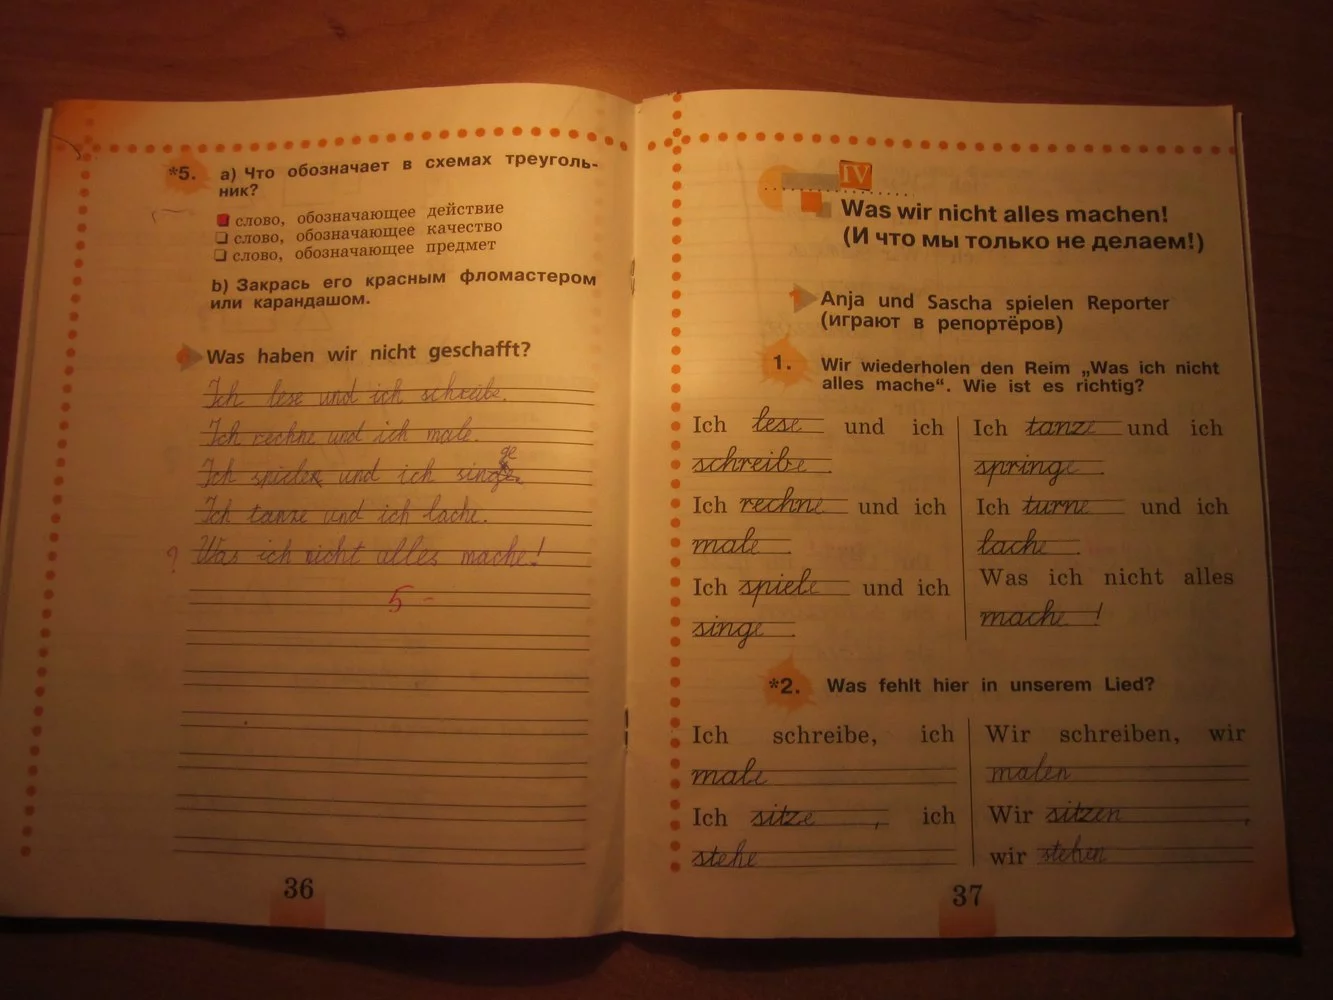 *5. а) Что обозначает в схемах треуголь-
ник?
слово, обозначающее действие
слово, обозначающее качество
слово, обозначающее предмет
b) Закрась его красным фломастером
или карандашом.
Was haben wir nicht geschafft?
Ich lese und ich schreibe.
Ich rechne und ich male.
ge
Ich spielen und ich singe.
Ich tanze und ich lache.
? Was ich nicht alles mache!
5 -
36
IV
Was wir nicht alles machen!
(И что мы только не делаем!)
Anja und Sascha spielen Reporter
(играют в репортёров)
1. Wir wiederholen den Reim „Was ich nicht
alles mache“. Wie ist es richtig?
Ich lese und ich
schreibe.
Ich rechne und ich
male.
Ich spiele und ich
singe.
Ich tanze und ich
springe.
Ich turne und ich
lache.
Was ich nicht alles
mache!
*2. Was fehlt hier in unserem Lied?
Ich schreibe, ich
male
Ich sitze, ich
stehe
Wir schreiben, wir
malen
Wir sitzen,
wir stehen
37